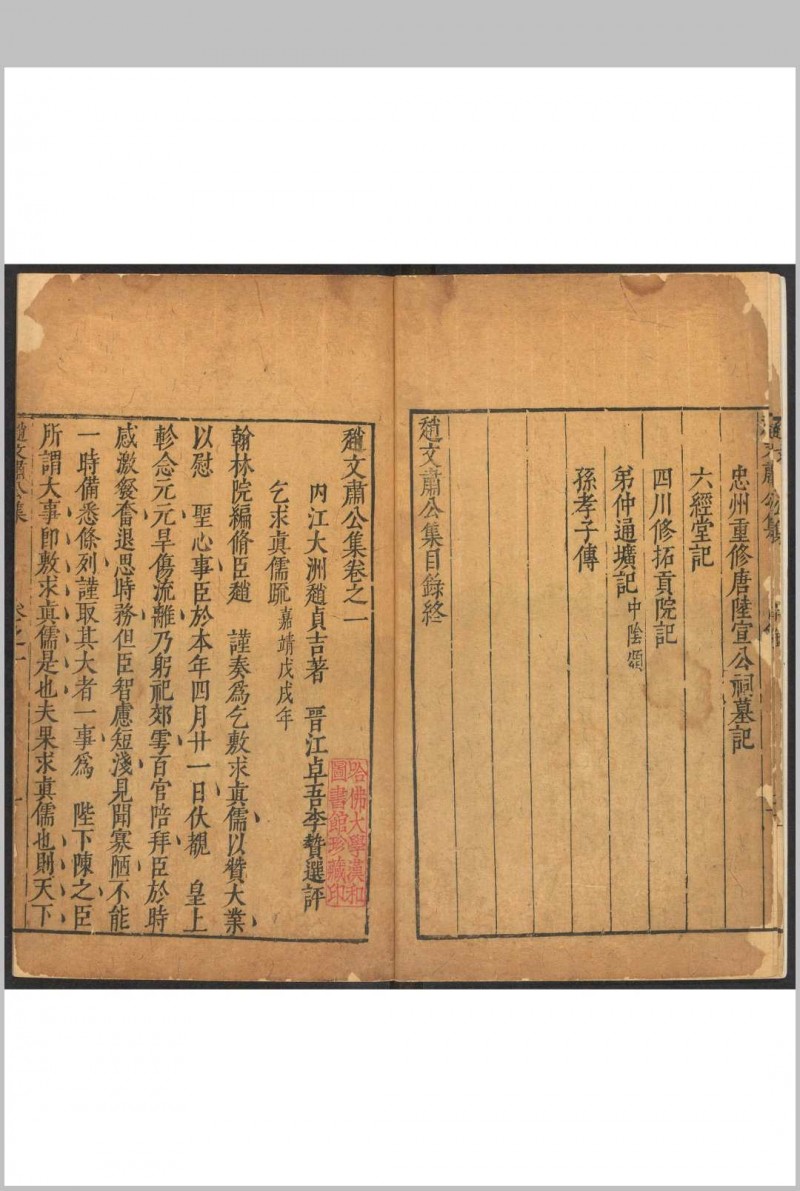 忠州重修唐陸宣公祠墓記
六經堂記
四川修拓貢院記
弟仲通壙記中陰頌
孫孝子傳
趙文肅公集目錄終
趙文肅公集卷之一
內江大洲趙貞吉著 晉江卓吾李贄選評
乞求真儒疏嘉靖戊戌年
哈佛大學漢和圖書館珍藏印
翰林院編脩臣趙 謹奏為乞敷求真儒以贊大業
以慰 聖心事臣於本年四月廿一日伏覩 皇上
軫念元元旱傷流離乃躬祀郊雩百官陪拜臣於時
感激發奮退思時務但臣智慮短淺見聞寡陋不能
一時備悉條列謹取其大者一事為 陛下陳之臣
所謂大事即敷求真儒是也夫果求真儒也則天下
趙文肅公集 卷之一